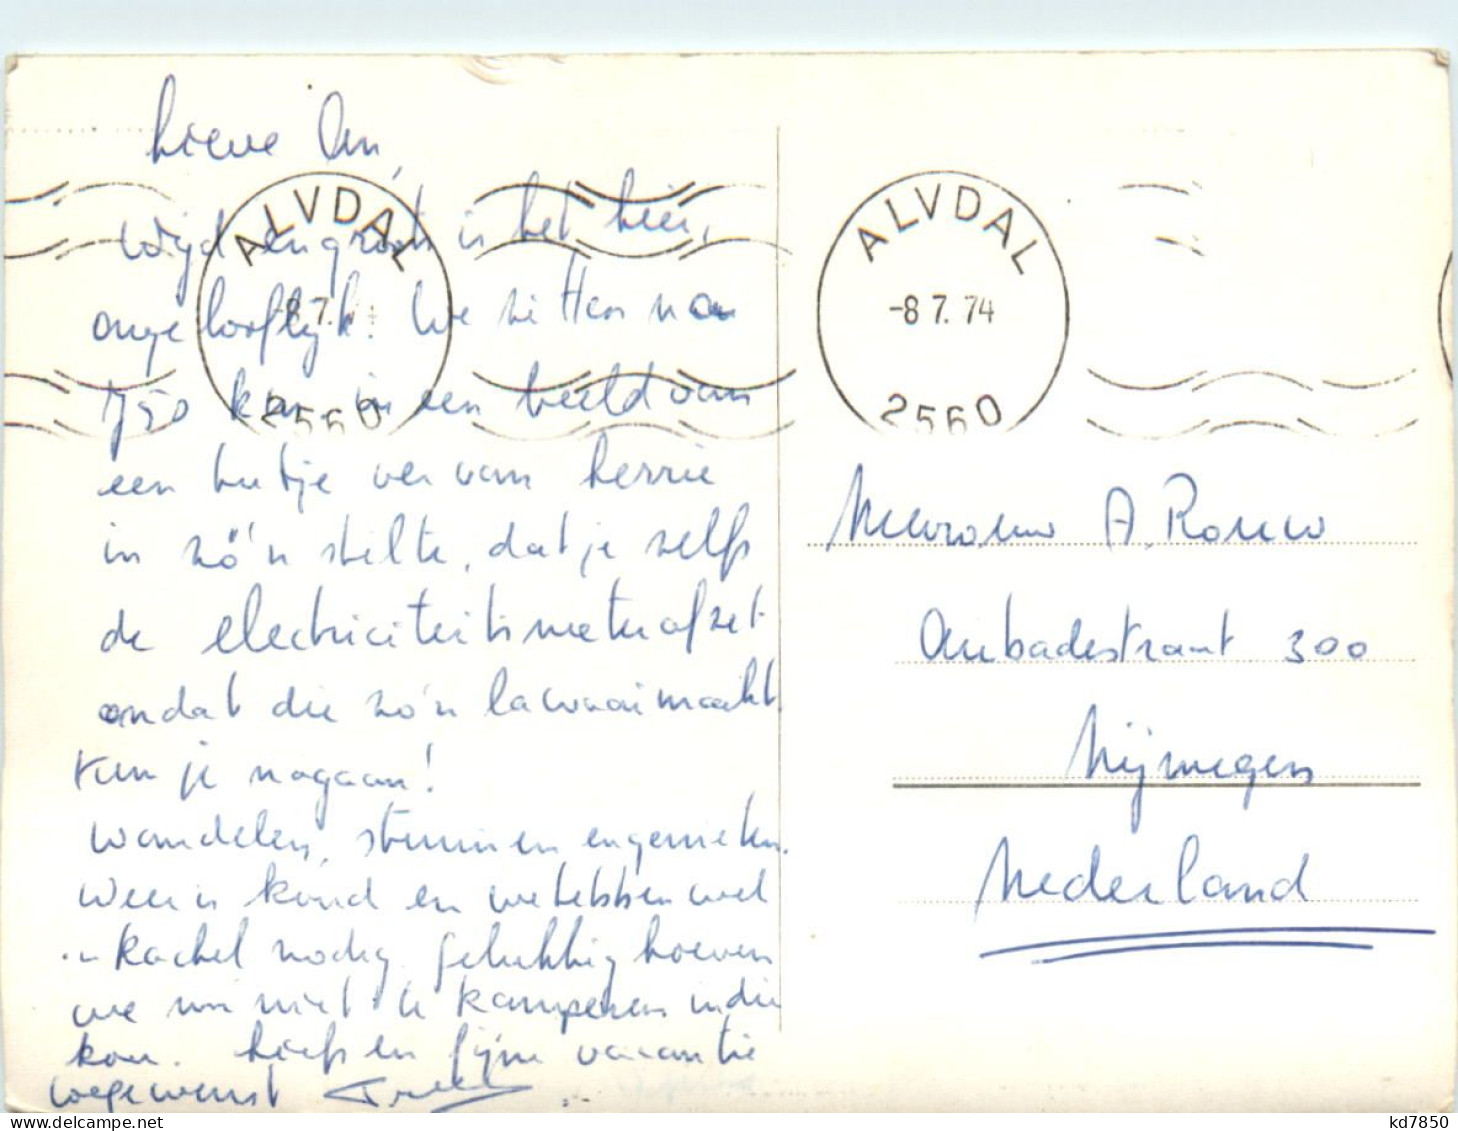 Lieve An,
Wijd en groot is het hier,
ongelooflijk. We zitten na
1750 km. in een beeld van
een hutje ver van herrie
in zó'n stilte, dat je zelfs
de electriciteitsmeter afzet
omdat die zo'n lawaai maakt
kun je nagaan!
Wandelen, struinen en genieten.
Weer is koud en we hebben wel
'n kachel nodig. Gelukkig hoeven
we nu niet te kamperen in die
kou. Liefs en fijne vacantie
toegewenst
ALVDAL
-8.7.
2560
ALVDAL
-8 7. 74
2560
Mevrouw A. Rouw
Aubadestraat 300
Nijmegen
Nederland
kd7850